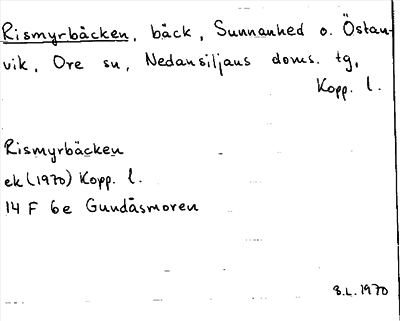 Rismyrbäcken, bäck, Sunnanhed o. Östan-
vik, Ore sn, Nedansiljans doms. tg,
Kopp. l.
Rismyrbäcken
ek (1970) Kopp. l.
14 F 6e Gundåsmoren
S.L. 1970